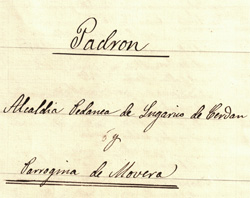 Padron
Alcaldia Pedanea de Lugarico de Cerdan
y
Torre
de Movera